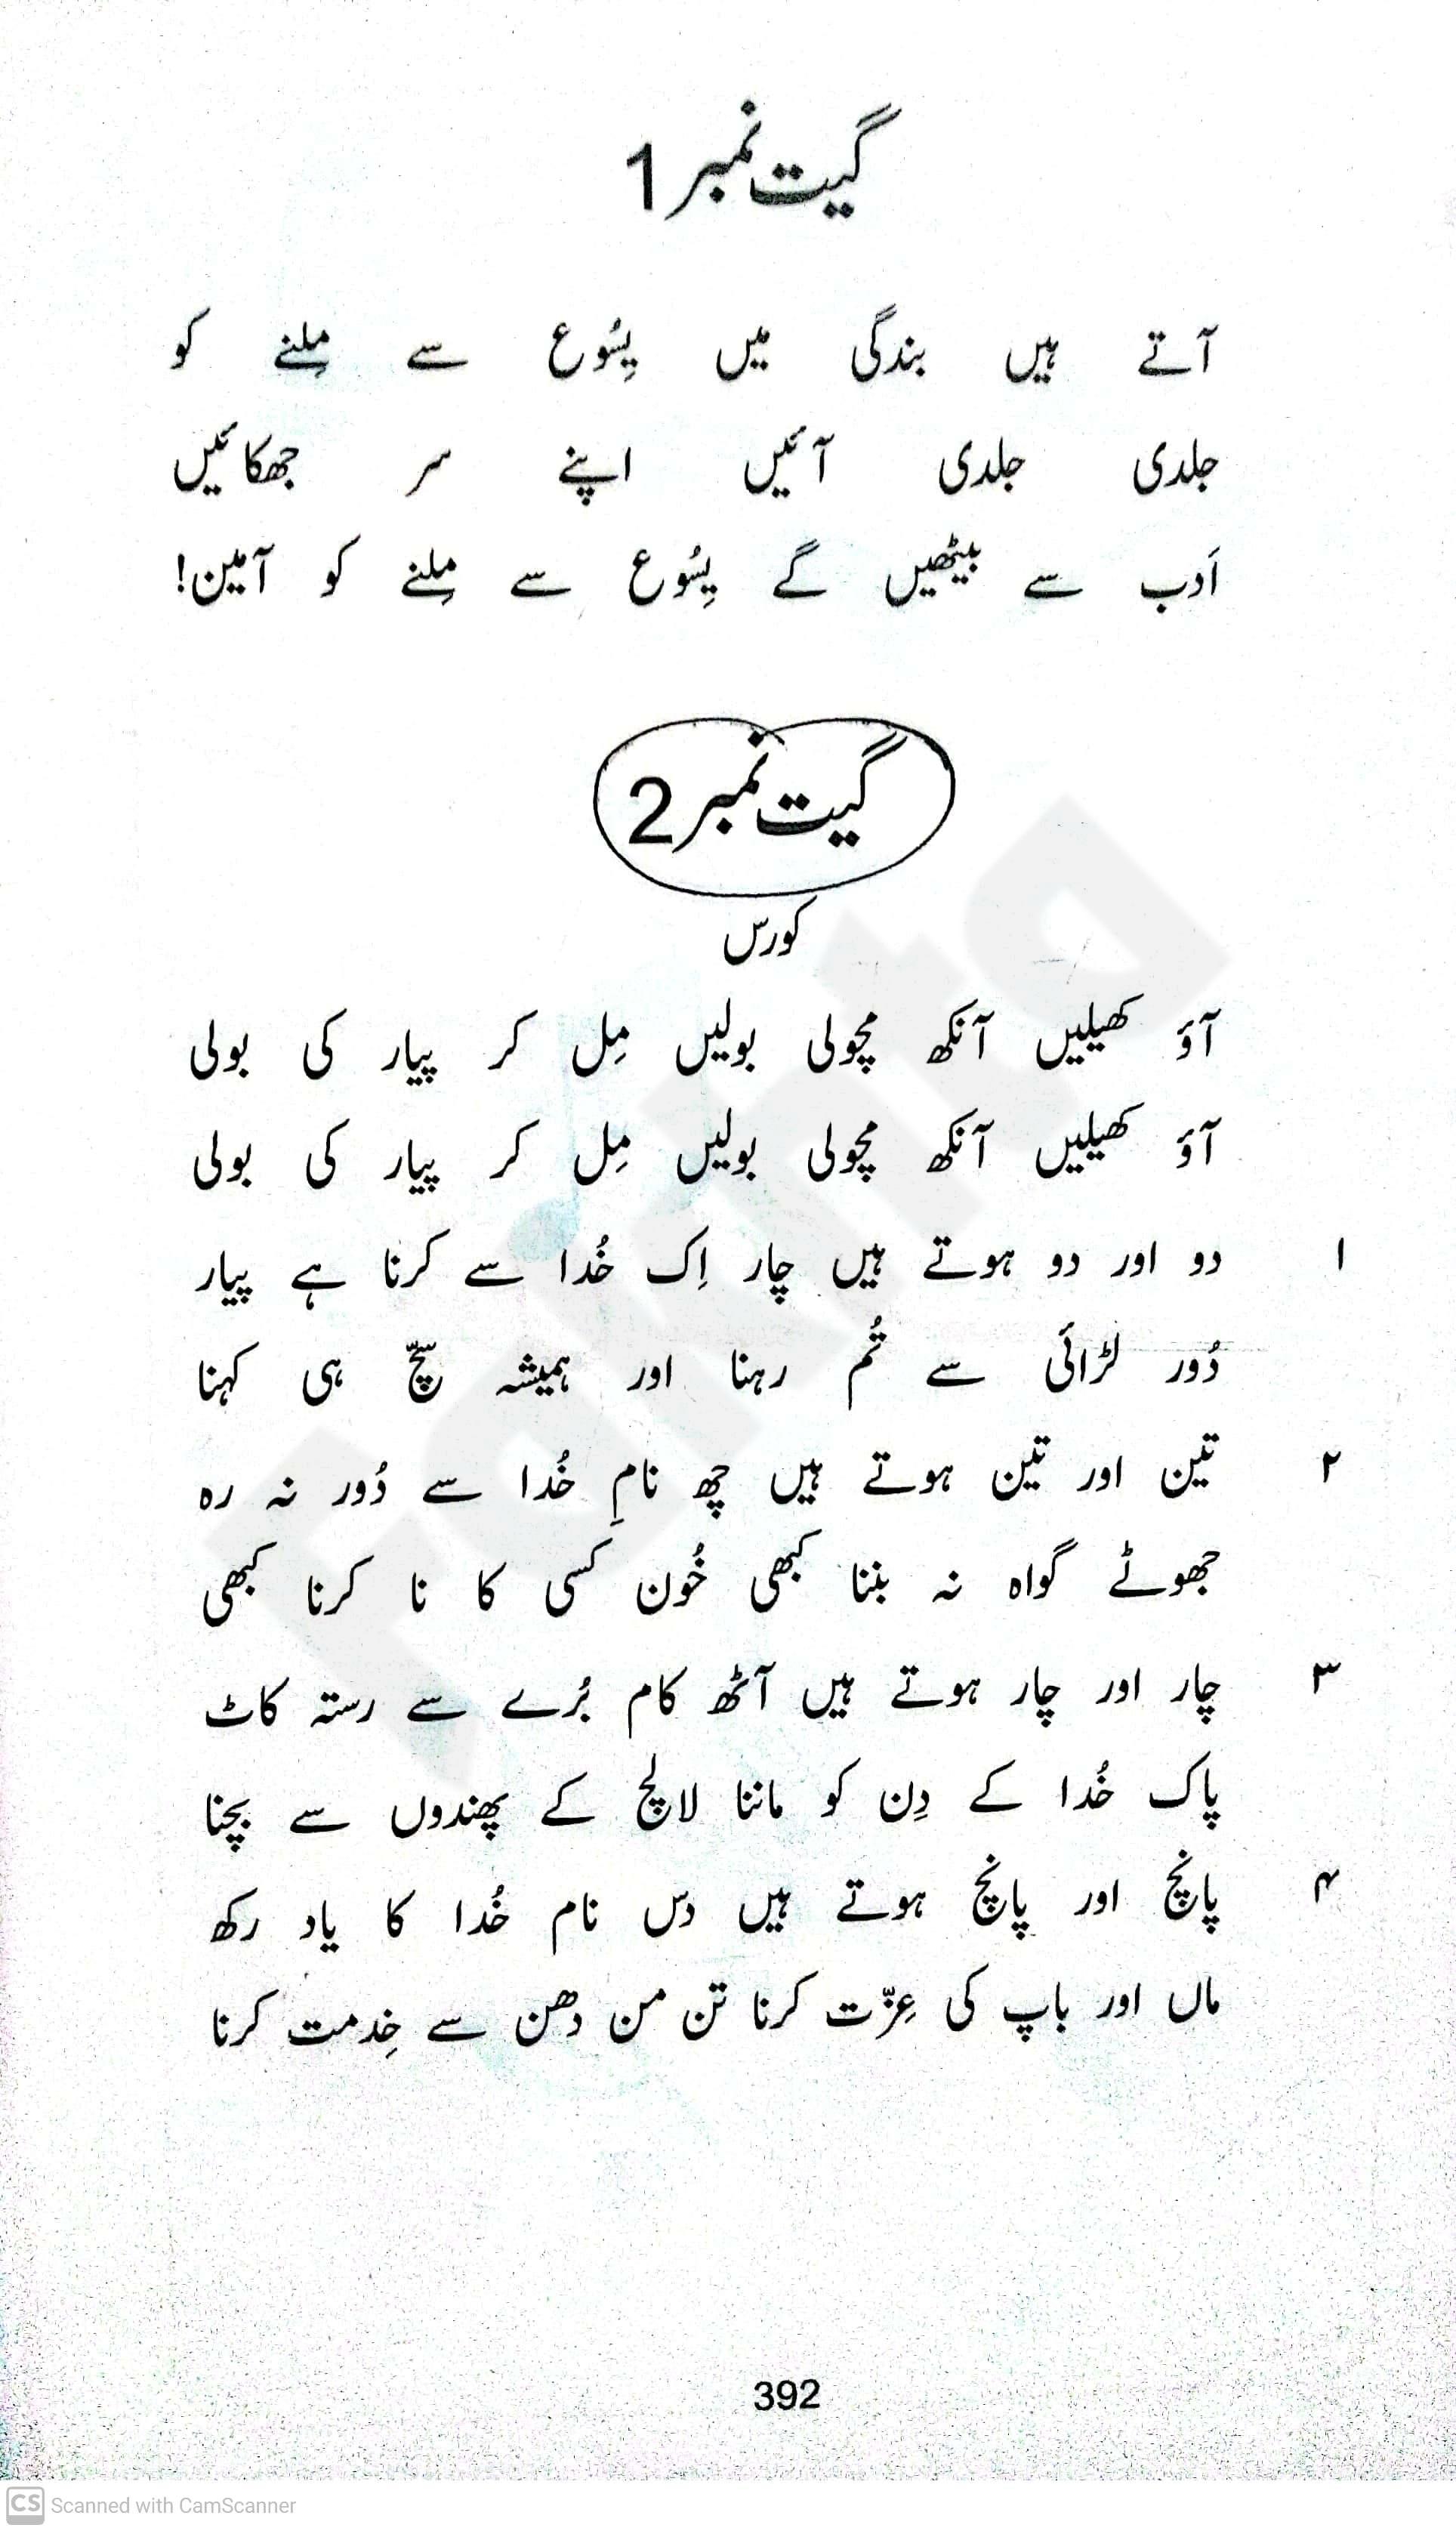 گیت نمبر 1
آتے ہیں بندگی میں یِسُوع سے مِلنے کو
جلدی جلدی آئیں اپنے سر جھکائیں
اَدب سے بیٹھیں گے یِسُوع سے مِلنے کو آمین!
گیت نمبر 2
کورس
آؤ کھیلیں آنکھ مچولی بولیں مِل کر پیار کی بولی
آؤ کھیلیں آنکھ مچولی بولیں مِل کر پیار کی بولی
۱ دو اور دو ہوتے ہیں چار اِک خُدا سے کرنا ہے پیار
دُور لڑائی سے تُم رہنا اور ہمیشہ سچّ ہی کہنا
۲ تین اور تین ہوتے ہیں چھ نامِ خُدا سے دُور نہ رہ
جھوٹے گواہ نہ بننا کبھی خُون کسی کا نا کرنا کبھی
۳ چار اور چار ہوتے ہیں آٹھ کام بُرے سے رستہ کاٹ
پاک خُدا کے دِن کو ماننا لالچ کے پھندوں سے بچنا
۴ پانچ اور پانچ ہوتے ہیں دس نام خُدا کا یاد رکھ
ماں اور باپ کی عِزّت کرنا تن من دھن سے خِدمت کرنا
392
CS Scanned with CamScanner
Fakhta